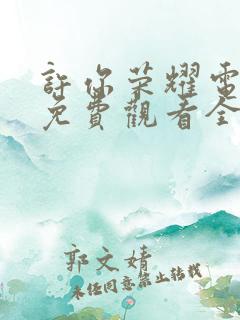 許你荣耀電
免費觀看全
郭文婧
未任同意禁止转载